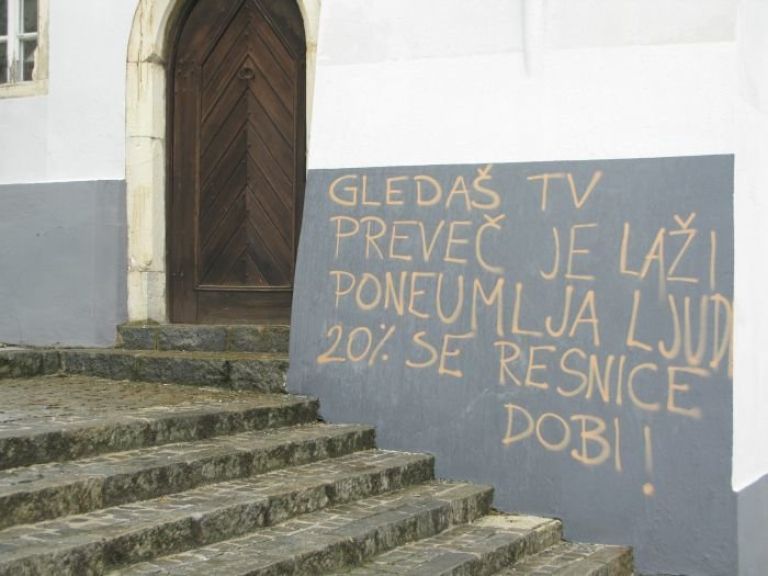 GLEDAŠ TV
PREVEČ JE LAŽI
PONEUMLJA LJUDI
20% SE RESNICE
DOBI!